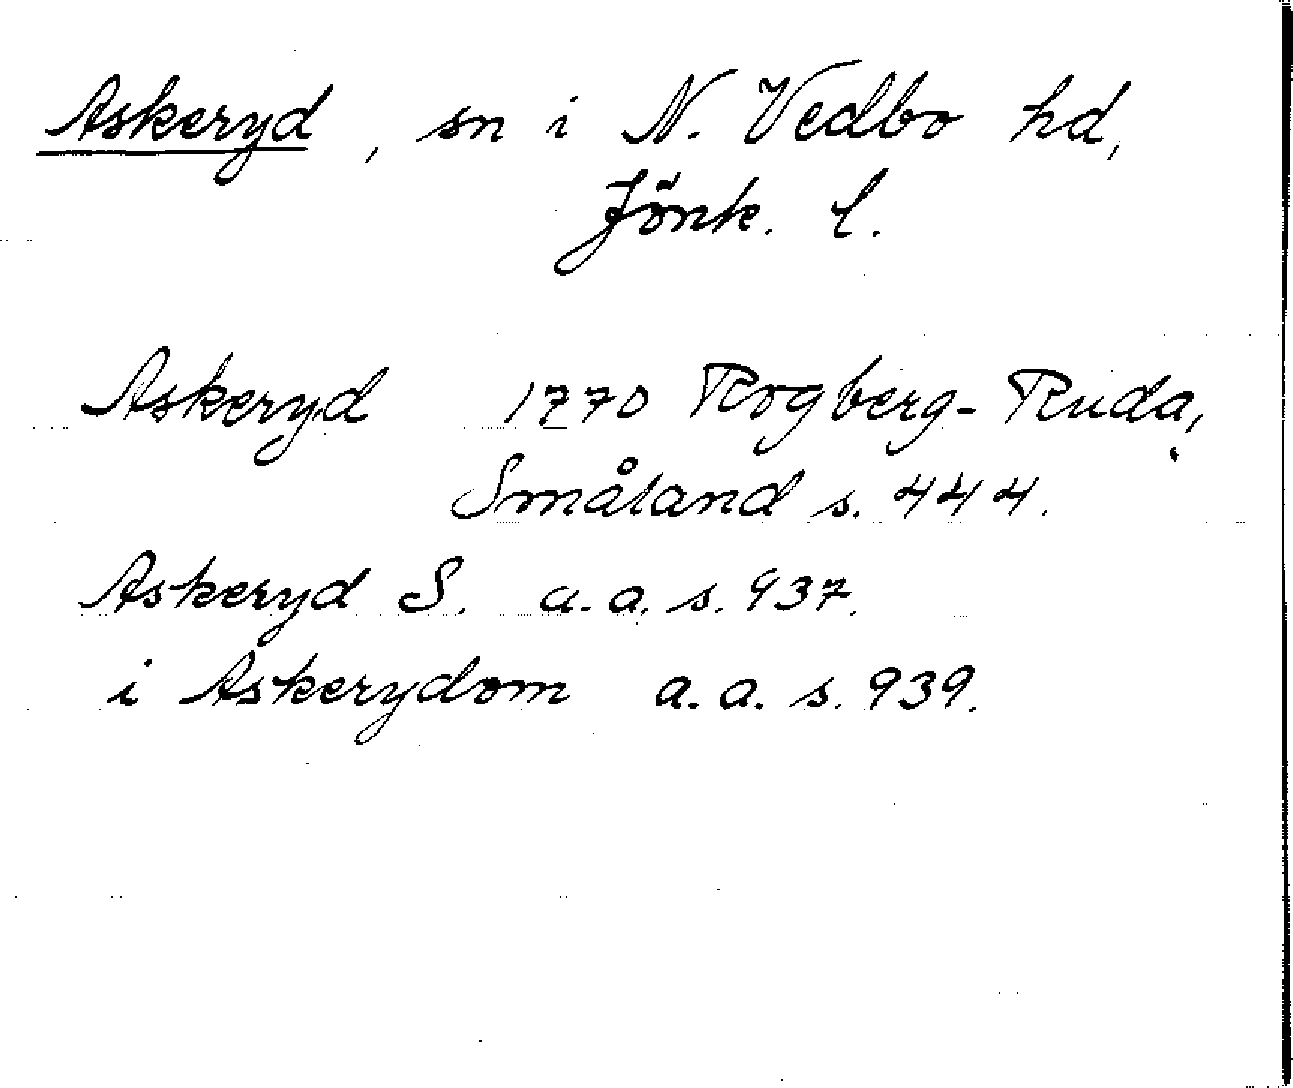 Askeryd, sn i N. Vedbo hd,
Jönk. l.
Askeryd 1770 Rogberg-Ruda,
Småland s. 444.
Askeryd S. a.a. s. 937.
i Askerydom a.a. s. 939.